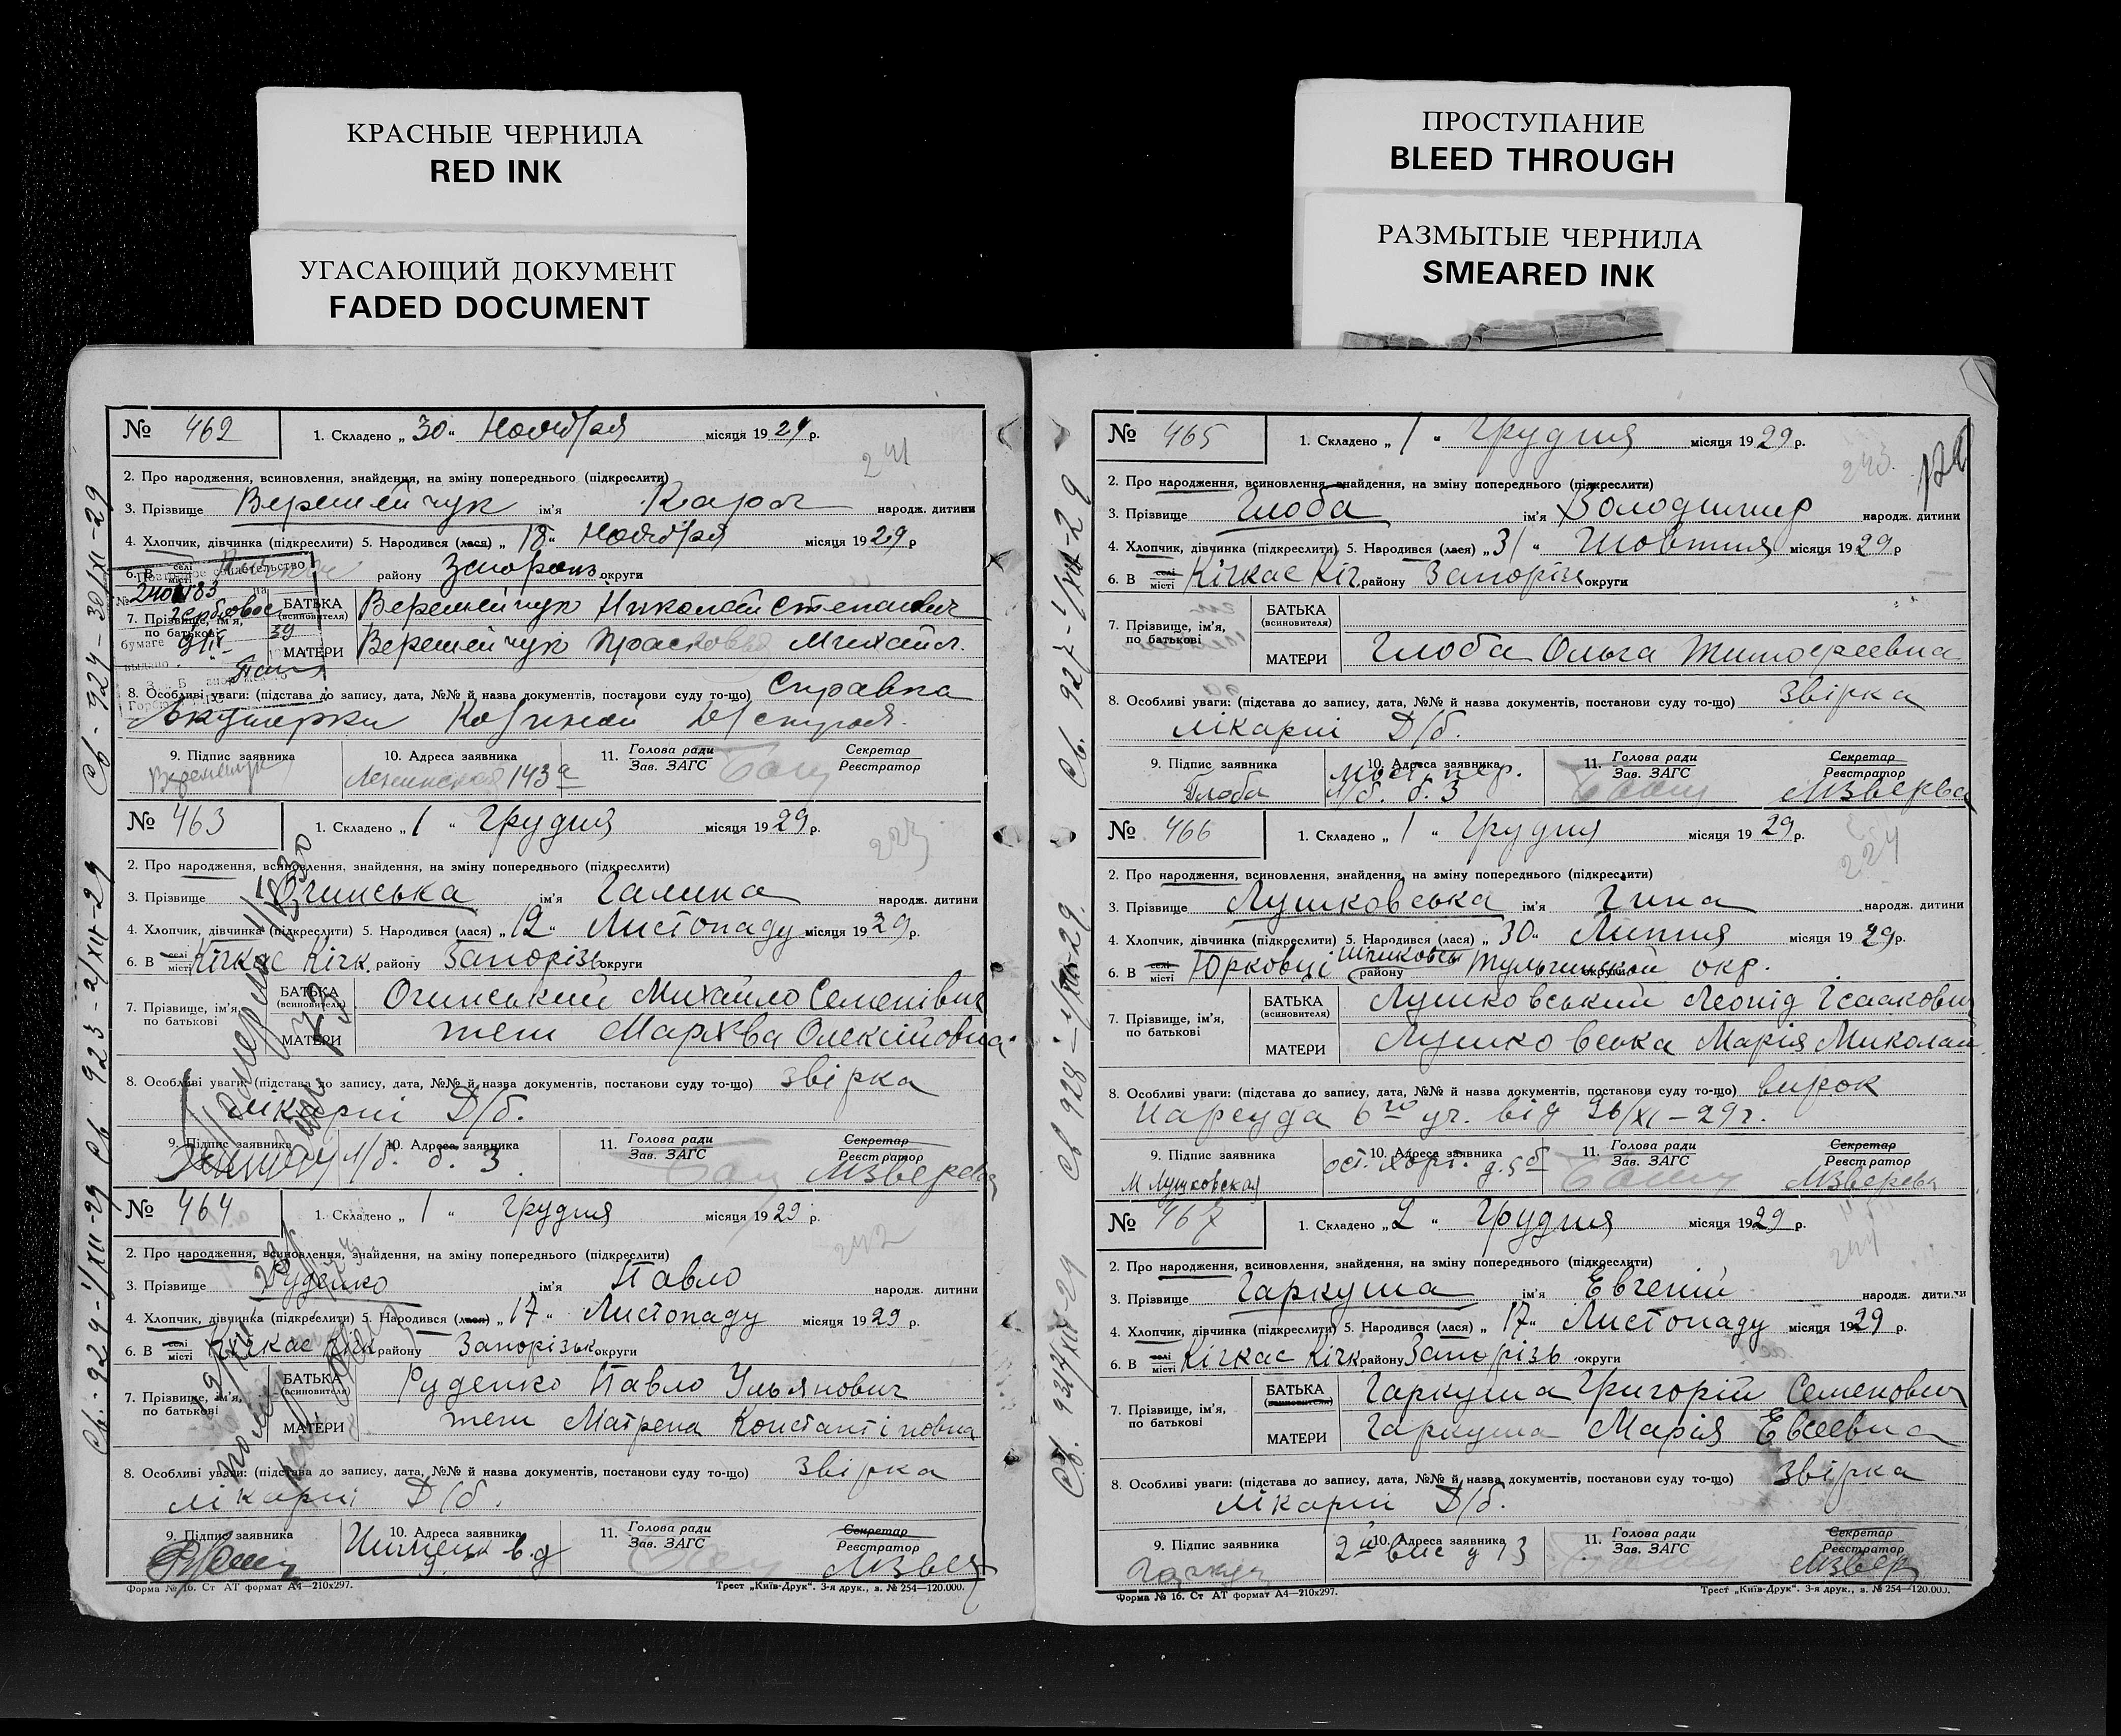 КРАСНЫЕ ЧЕРНИЛА
RED INK
УГАСАЮЩИЙ ДОКУМЕНТ
FADED DOCUMENT
ПРОСТУПАНИЕ
BLEED THROUGH
РАЗМЫТЫЕ ЧЕРНИЛА
SMEARED INK
№ 462 1. Складено „ 30 “ Ноября місяця 1929 р.
241
2. Про народження, всиновлення, знайдення, на зміну попереднього (підкреслити)
3. Прізвище Веремейчук ім'я Карл народж. дитини
4. Хлопчик, дівчинка (підкреслити) 5. Народився (лася) „ 18 “ Ноября місяця 1929 р
6. В селі місті району Запорізь округи
7. Прізвище, ім'я, по батькові БАТЬКА (всиновителя) Веремейчук Николай Степанович
МАТЕРИ Веремейчук Прасковья Михайл.
8. Особливі уваги: (підстава до запису, дата, №№ й назва документів, постанови суду то-що) Справка
Акушерки
9. Підпис заявника 10. Адреса заявника Ленинская 143а 11. Голова ради Зав. ЗАГС Секретар Реєстратор
№ 463 1. Складено „ 1 “ Грудня місяця 1929 р.
223
2. Про народження, всиновлення, знайдення, на зміну попереднього (підкреслити)
3. Прізвище Огинська ім'я Галина народж. дитини
4. Хлопчик, дівчинка (підкреслити) 5. Народився (лася) „ 12 “ Листопаду місяця 1929 р.
6. В селі місті Кічкас Кічк. району Запорізь округи
7. Прізвище, ім'я, по батькові БАТЬКА (всиновителя) Огинський Михайло Семенівич
МАТЕРИ теж Марква Олексійовна
8. Особливі уваги: (підстава до запису, дата, №№ й назва документів, постанови суду то-що) звірка
лікарні Д/б.
9. Підпис заявника 10. Адреса заявника л/б. б. 3. 11. Голова ради Зав. ЗАГС Секретар Реєстратор МЗверева
№ 464 1. Складено „ 1 “ Грудня місяця 1929 р.
242
2. Про народження, всиновлення, знайдення, на зміну попереднього (підкреслити)
3. Прізвище Руденко ім'я Павло народж. дитини
4. Хлопчик, дівчинка (підкреслити) 5. Народився (лася) „ 17 “ Листопаду місяця 1929 р.
6. В селі місті Кічкас Кічк району Запорізьк округи
7. Прізвище, ім'я, по батькові БАТЬКА (всиновителя) Руденко Павло Ульянович
МАТЕРИ теж Матрена Константіновна
8. Особливі уваги: (підстава до запису, дата, №№ й назва документів, постанови суду то-що) звірка
лікарні Д/б.
9. Підпис заявника 10. Адреса заявника 11. Голова ради Зав. ЗАГС Секретар Реєстратор МЗвер
Форма № 16. Ст АТ формат А4—210х297. Трест „Київ-Друк“. 3-я друк., з. № 254—120.000.
№ 465 1. Складено „ 1 “ Грудня місяця 1929 р.
243
2. Про народження, всиновлення, знайдення, на зміну попереднього (підкреслити)
3. Прізвище Глоба ім'я Володимир народж. дитини
4. Хлопчик, дівчинка (підкреслити) 5. Народився (лася) „ 31 “ Жовтня місяця 1929 р
6. В селі місті Кічкас Кіч району Запорізь округи
7. Прізвище, ім'я, по батькові БАТЬКА (всиновителя)
МАТЕРИ Глоба Ольга Тимофеевна
8. Особливі уваги: (підстава до запису, дата, №№ й назва документів, постанови суду то-що) звірка
лікарні Д/б.
9. Підпис заявника Глоба 10. Адреса заявника л/б. б. 3 11. Голова ради Зав. ЗАГС Секретар Реєстратор МЗверева
№ 466 1. Складено „ 1 “ Грудня місяця 1929 р.
224
2. Про народження, всиновлення, знайдення, на зміну попереднього (підкреслити)
3. Прізвище Лушковська ім'я Гина народж. дитини
4. Хлопчик, дівчинка (підкреслити) 5. Народився (лася) „ 30 “ Липня місяця 1929 р.
6. В селі місті Юрковці району Тульчинской округи окр.
7. Прізвище, ім'я, по батькові БАТЬКА (всиновителя) Лушковський Леонід Ісаакович
МАТЕРИ Лушковська Марія Миколай.
8. Особливі уваги: (підстава до запису, дата, №№ й назва документів, постанови суду то-що) вирок
Нарсуда 6го уч. від 26/XI–29г.
9. Підпис заявника М Лушковская 10. Адреса заявника ост. Хорт. д. 5б 11. Голова ради Зав. ЗАГС Секретар Реєстратор МЗверева
№ 467 1. Складено „ 2 “ Грудня місяця 1929 р.
244
2. Про народження, всиновлення, знайдення, на зміну попереднього (підкреслити)
3. Прізвище Гаркуша ім'я Евгеній народж. дитини
4. Хлопчик, дівчинка (підкреслити) 5. Народився (лася) „ 17 “ Листопаду місяця 1929 р.
6. В селі місті Кічкас Кічк району Запорізь округи
7. Прізвище, ім'я, по батькові БАТЬКА (всиновителя) Гаркуша Григорій Семенович
МАТЕРИ Гаркуша Марія Евсеевна
8. Особливі уваги: (підстава до запису, дата, №№ й назва документів, постанови суду то-що) звірка
лікарні Д/б.
9. Підпис заявника 10. Адреса заявника 11. Голова ради Зав. ЗАГС Секретар Реєстратор МЗвер
Форма № 16. Ст АТ формат А4—210х297. Трест „Київ-Друк“. 3-я друк., з. № 254—120.000.